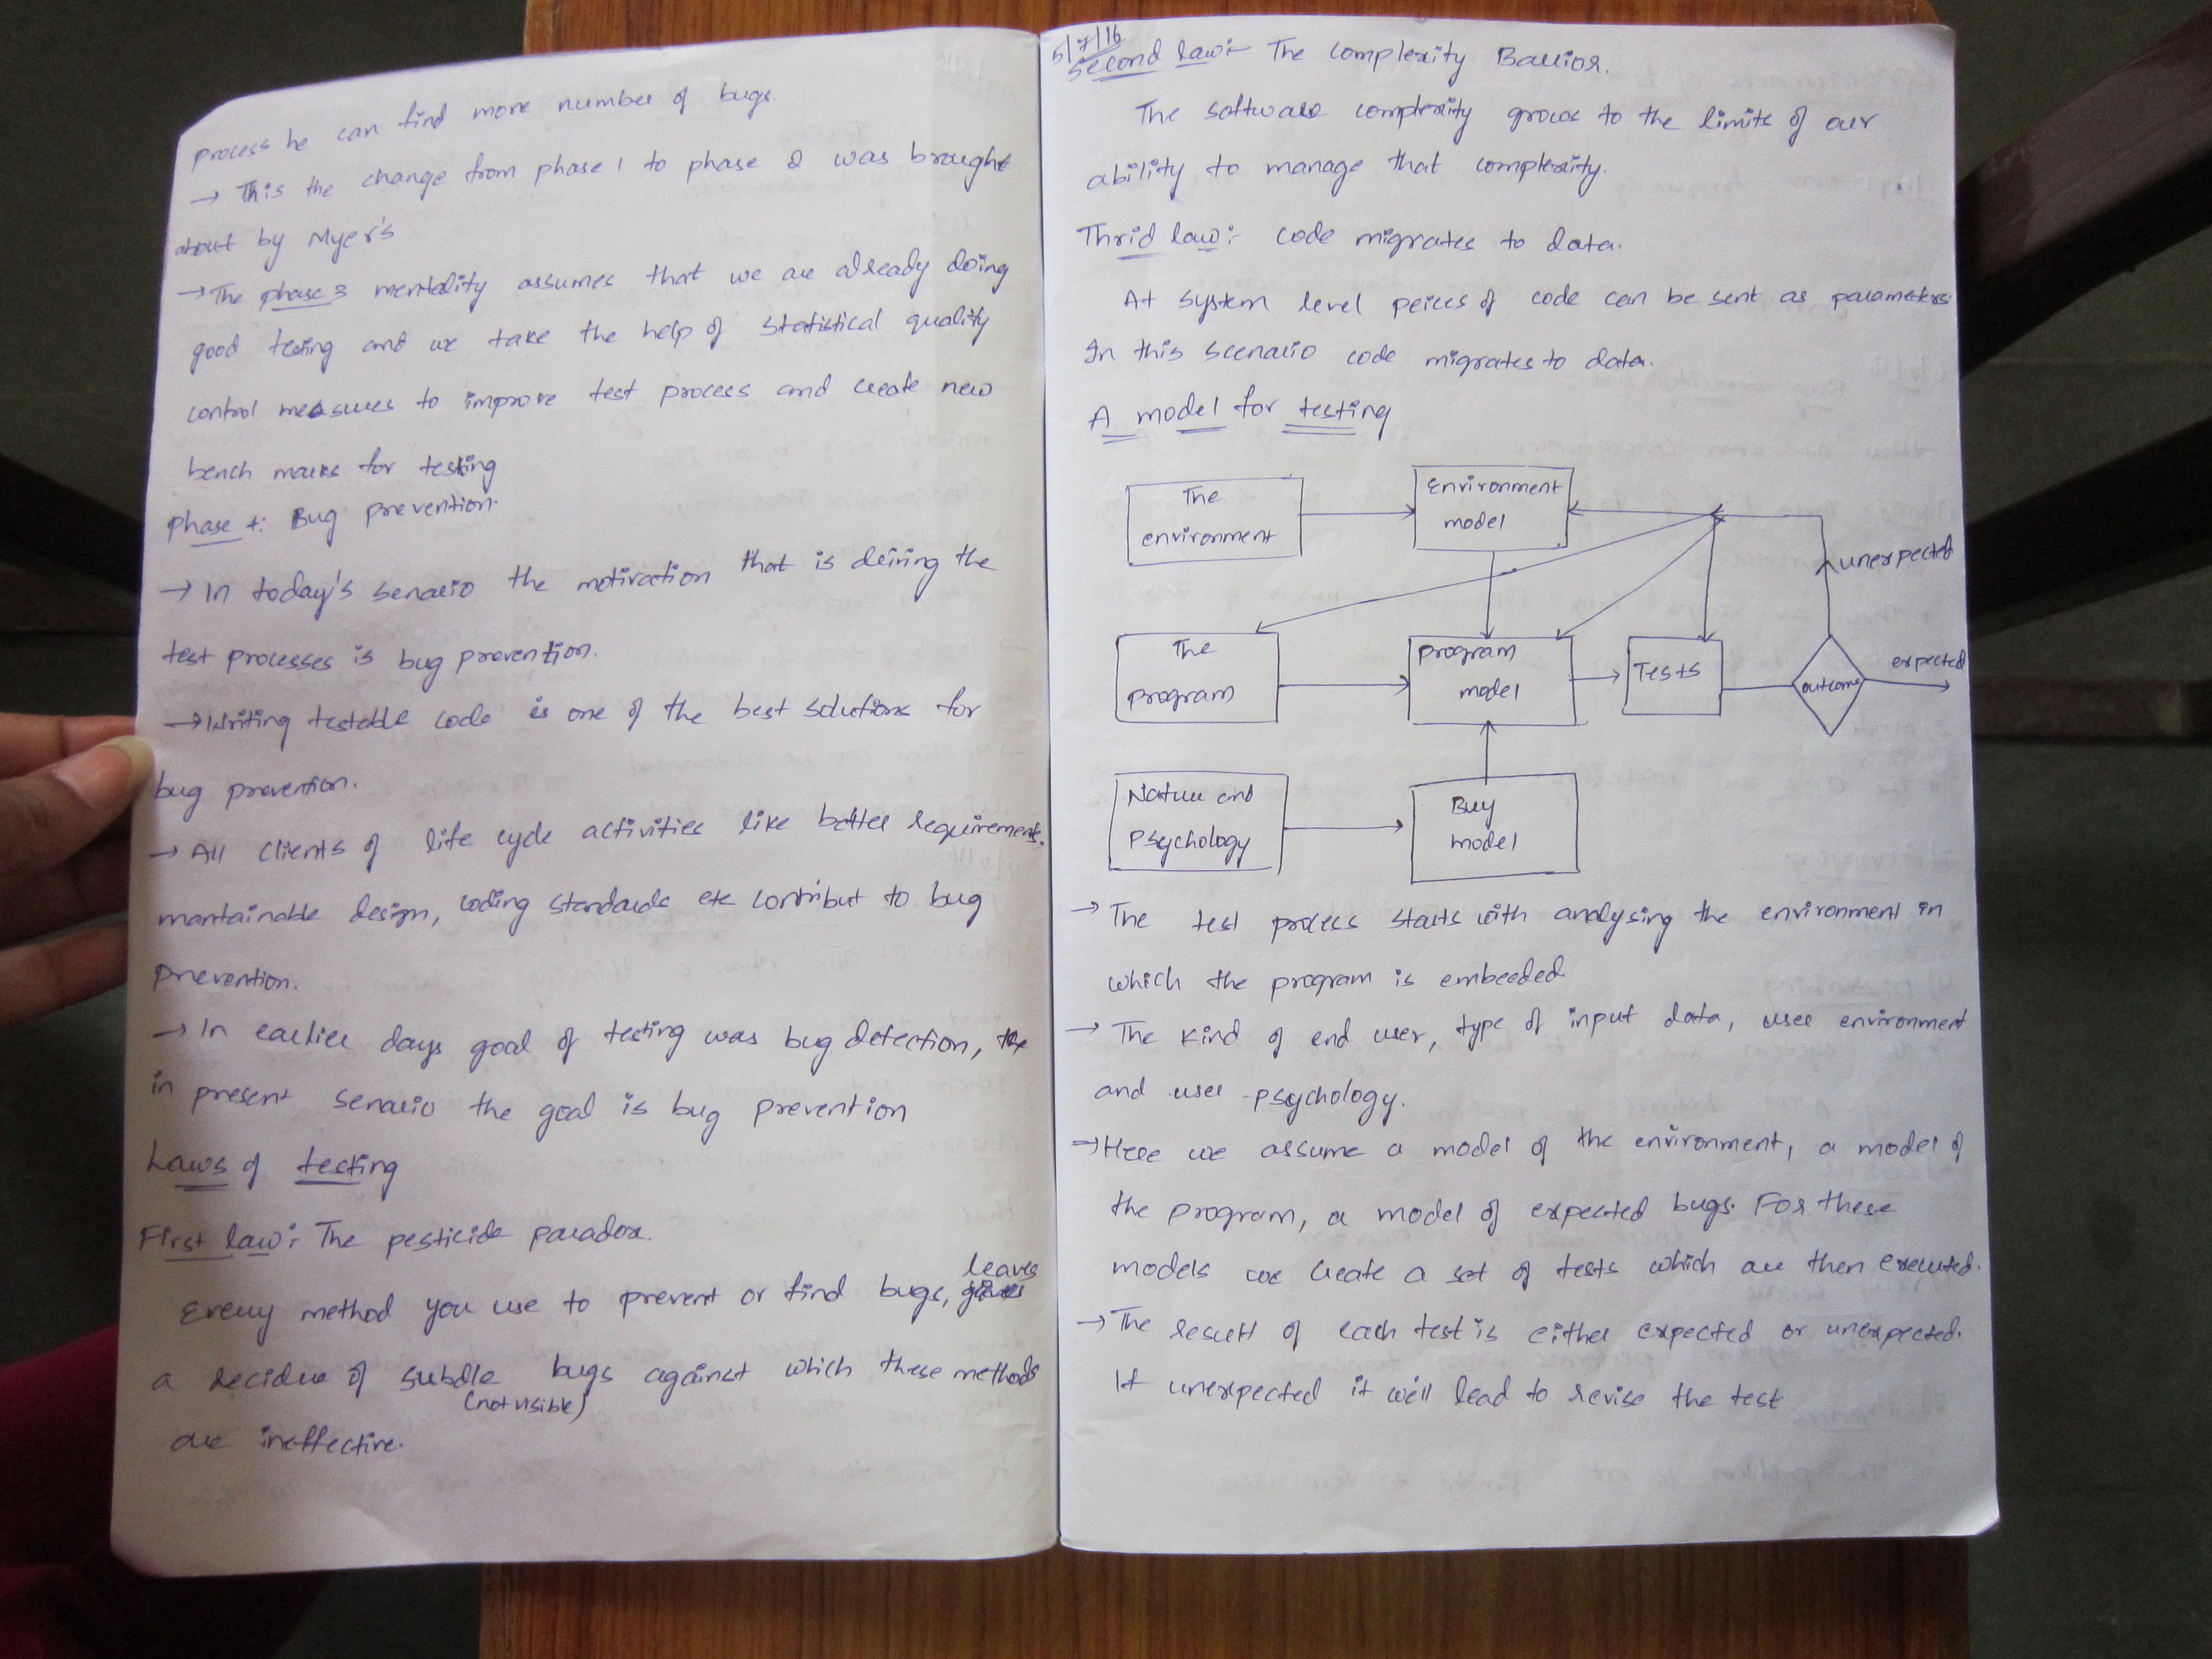 process he can find more number of bugs.
→ This the change from phase 1 to phase 2 was braught
about by Myer's
→ The phase 3 mentality assumes that we are already doing
good testing and we take the help of statistical quality
control measures to improve test process and create new
bench marks for testing
phase 4: Bug prevention.
→ In today's senario the motivation that is driving the
test processes is bug prevention.
→ Writing testable code is one of the best solutions for
bug prevention.
→ All clients of life cycle activities like better requirement,
mantainable design, coding standards etc contribut to bug
prevention.
→ In earlier days goal of testing was bug detection, the
in present senario the goal is bug prevention
Laws of testing
First law: The pesticide paradox.
Every method you use to prevent or find bugs, leaves
a decidue of subdle bugs against which these methods
(not visible)
are ineffective.
6/7/16
Second law:- The complexity Barrior.
The software complexity grows to the limits of our
ability to manage that complexity.
Thrid law:- code migrates to data.
At system level peices of code can be sent as parameters.
In this scenario code migrates to data.
A model for testing
The environment
Environment model
unexpected
The program
program model
Tests
outcome
expected
Nature and psychology
Buy model
→ The test process starts with analysing the environment in
which the program is embeded
→ The kind of end user, type of input data, uses environment
and uses psychology.
→ Here we assume a model of the environment, a model of
the program, a model of expected bugs. For these
models we create a set of tests which are then executed.
→ The result of each test is either expected or unexpected.
If unexpected it will lead to revise the test